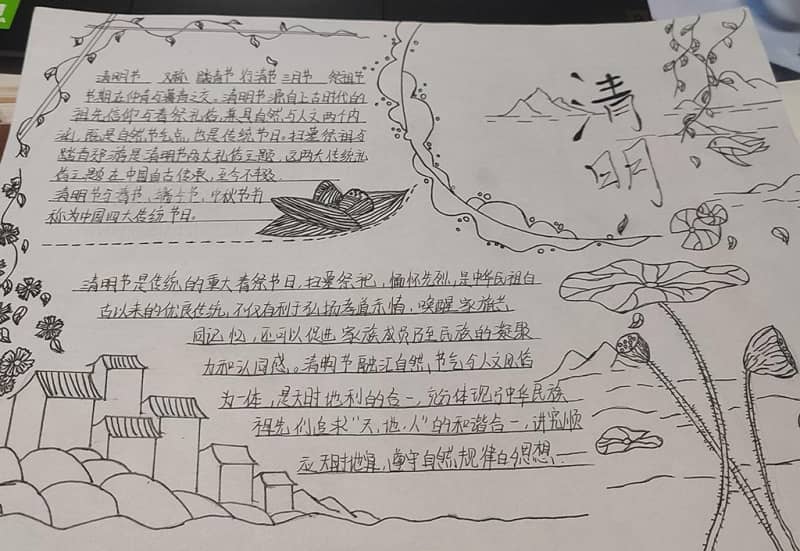 清明
清明节 又称 踏青节 行清节 三月节 祭祖节
节期在仲春与暮春之交。清明节源自上古时代的
祖先信仰与春祭礼俗,兼具自然与人文两个内
涵,既是自然节气点,也是传统节日。扫墓祭祖与
踏青郊游是清明节的大礼俗主题,这两大传统礼
俗主题在中国自古传承,至今不辍.
清明节与春节、端午节、中秋节并
称为中国四大传统节日。
清明节是传统的重大春祭节日,扫墓祭祀,缅怀先烈,是中华民祖自
古以来的优良传统,不仅有利于弘扬孝道亲情,唤醒家族共
同记忆,还可以促进家族成员乃至民族的凝聚
力和认同感。清明节融汇自然节气与人文风俗
为一体,是天时地利的合一,充分体现了中华民族
祖先们追求“天、地、人”的和谐合一,讲究顺
应天时地宜,遵守自然规律的思想.